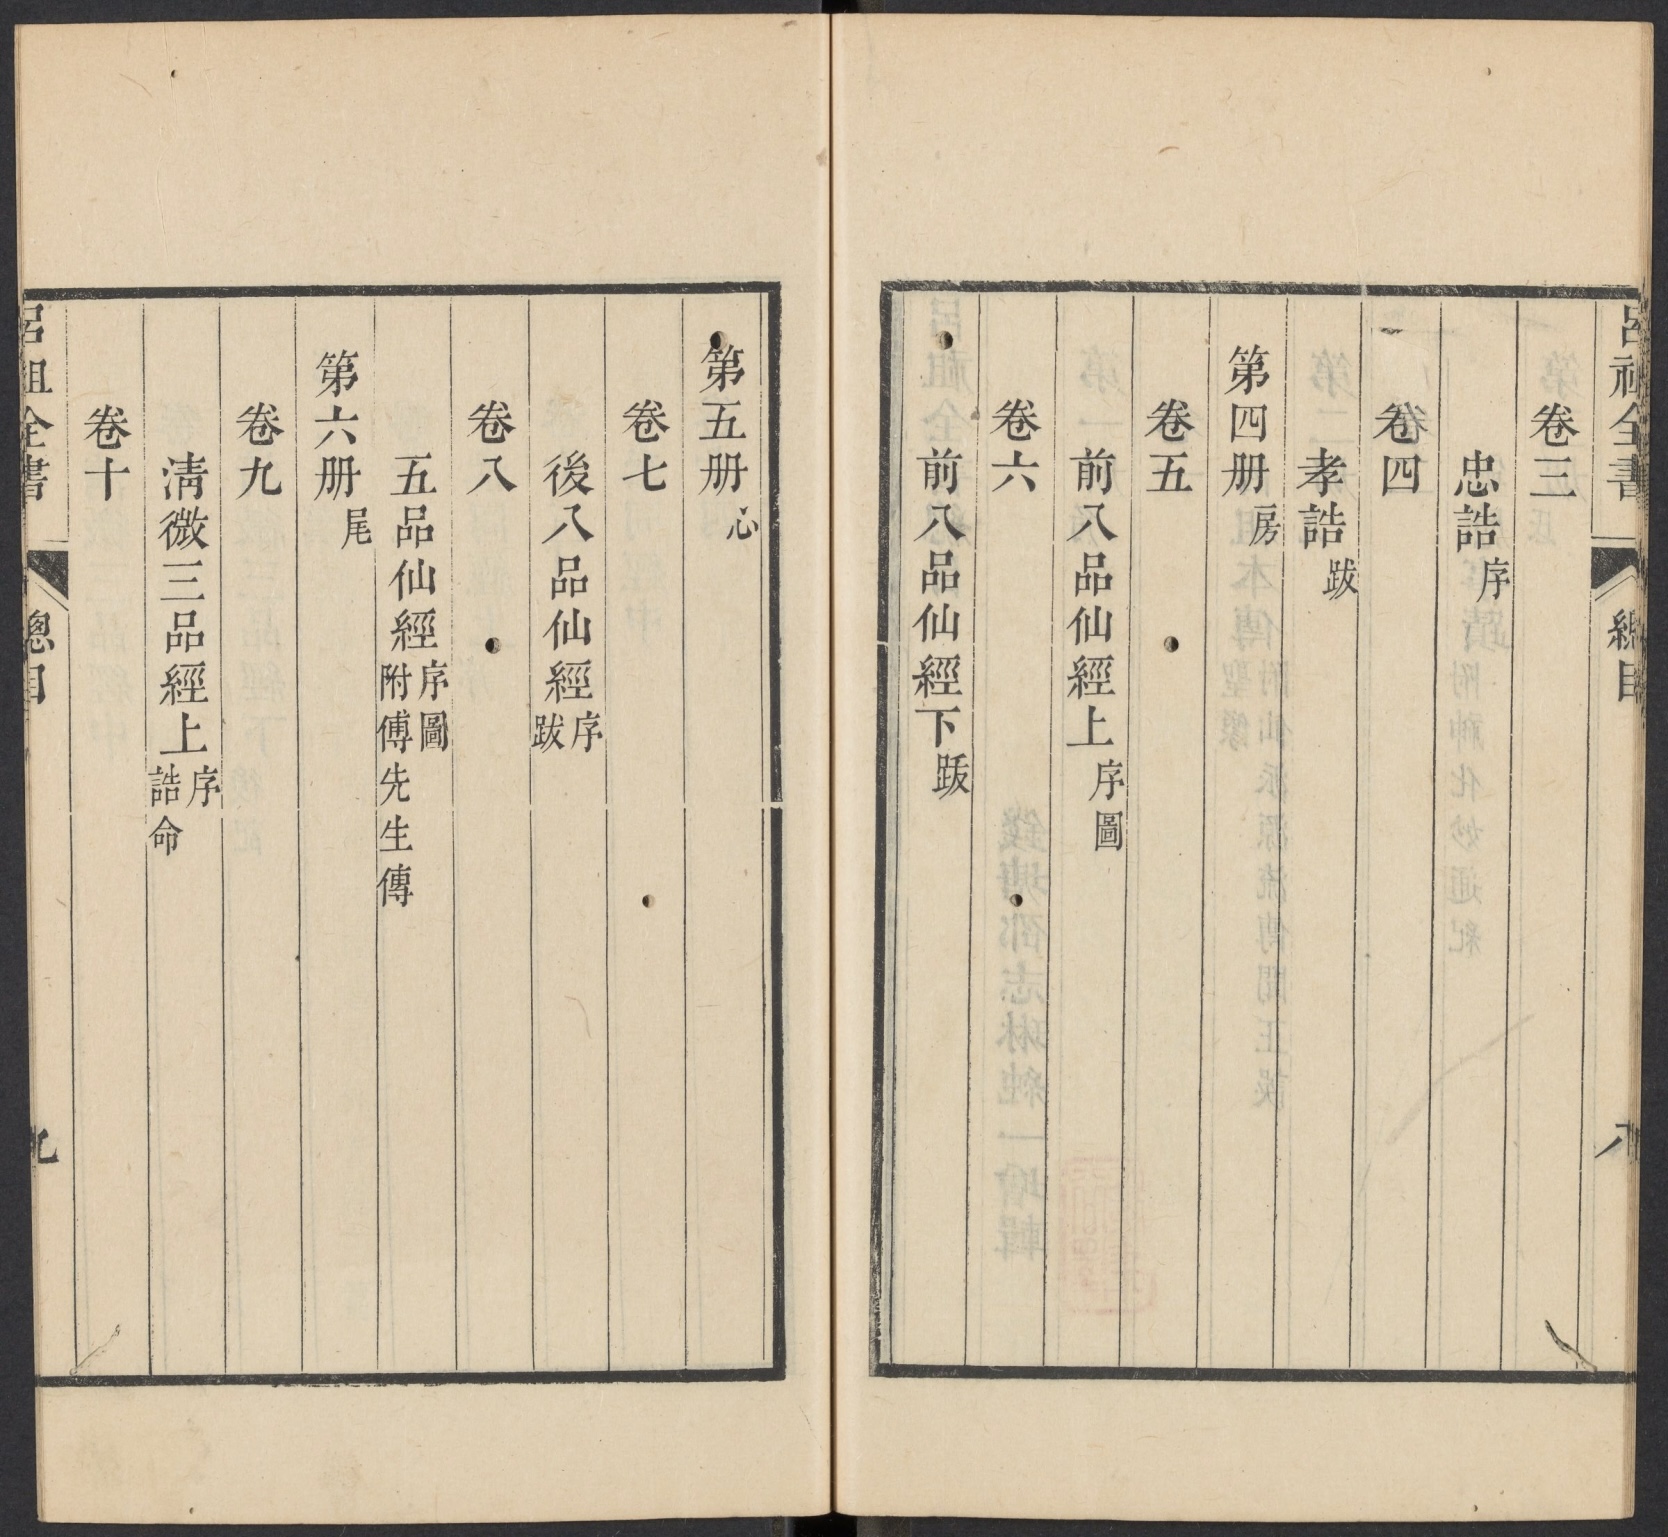 呂祖全書 總目 八
卷三
忠誥序
卷四
孝誥跋
第四册房
卷五
前八品仙經上序圖
卷六
前八品仙經下跋
第五册心
卷七
後八品仙經序跋
卷八
五品仙經序圖附傅先生傳
第六册尾
卷九
淸微三品經上序誥命
卷十
呂祖全書 總目 九